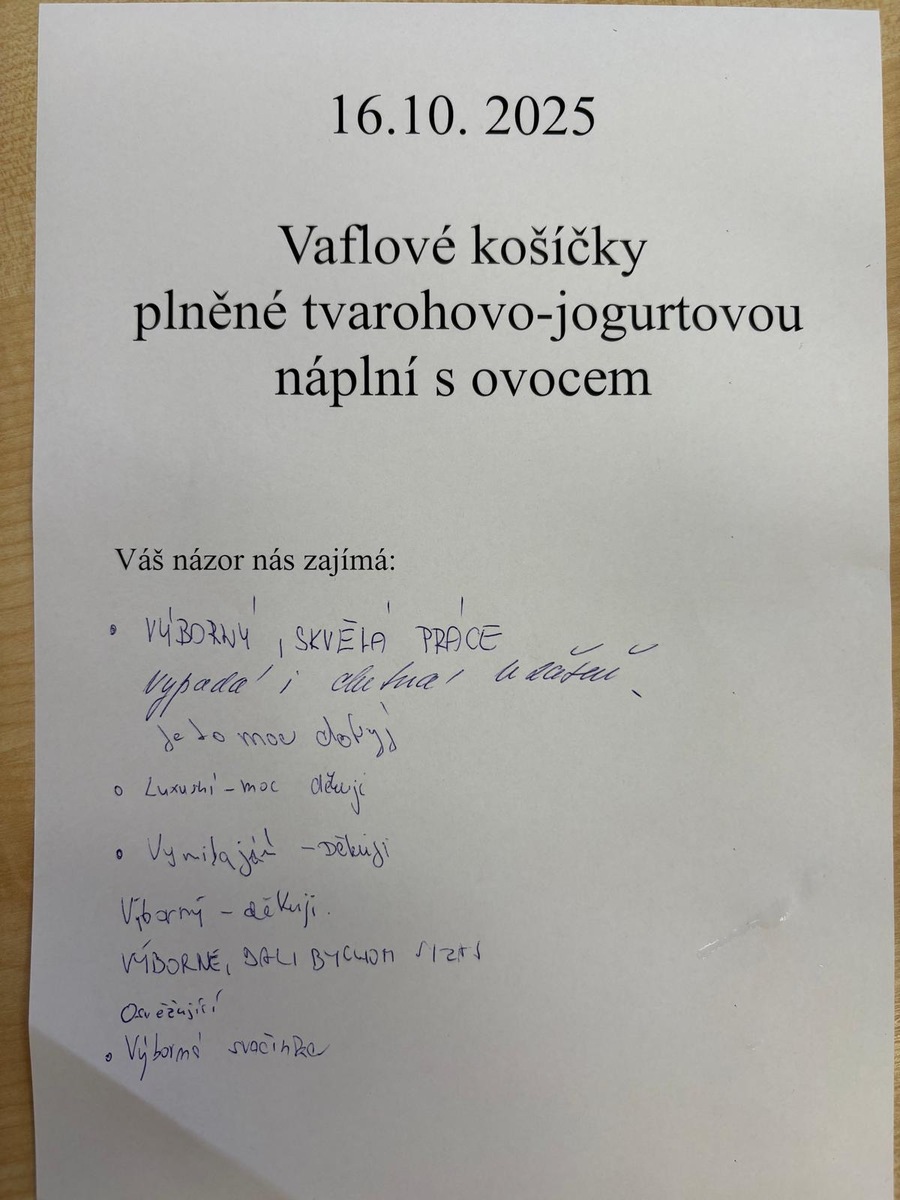 16.10. 2025
Vaflové košíčky
plněné tvarohovo-jogurtovou
náplní s ovocem
Váš názor nás zajímá:
• VÝBORNÝ, SKVĚLÁ PRÁCE
Vypadá i chutná úžasně.
Je to moc
• Luxusní - moc děkuji
• - Děkuji
Výborný - děkuji.
VÝBORNÉ, DALI BYCHOM SI ZAS
Osvěžující
• Výborná svačinka